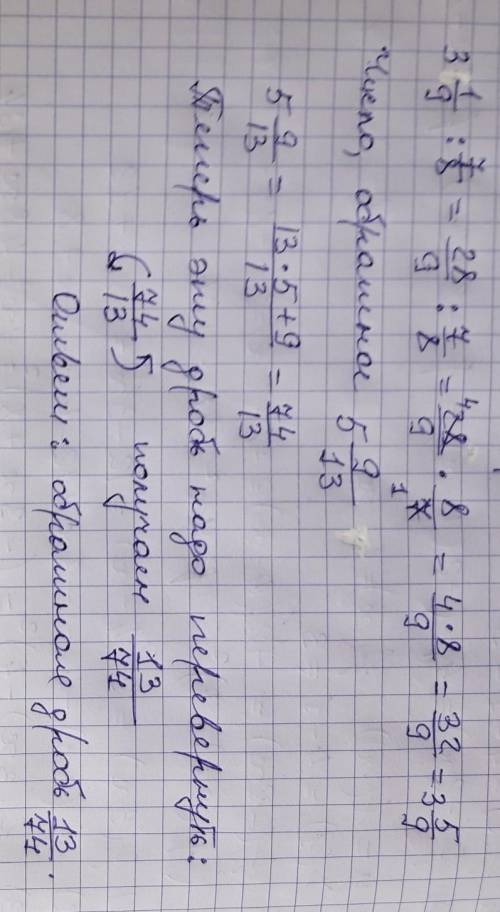 3 1/9 : 7/8 = 28/9 : 7/8 = 28/9 · 8/7 = 4·8/9 = 32/9 = 3 5/9
Число, обратное 5 9/13
5 9/13 = 13·5+9/13 = 74/13
Теперь эту дробь надо перевернуть:
(74/13) получаем 13/74
Ответ: обратная дробь 13/74.